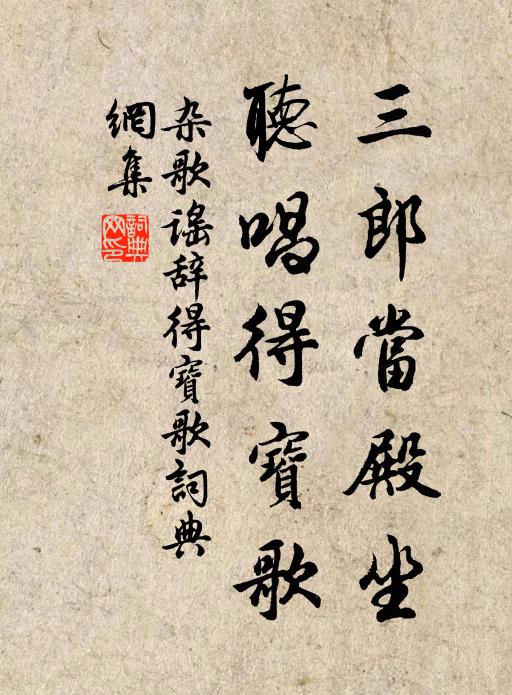 三郎當殿坐
聽唱得寶歌
杂歌謠辞得寶歌詞典
網集
詞典网印